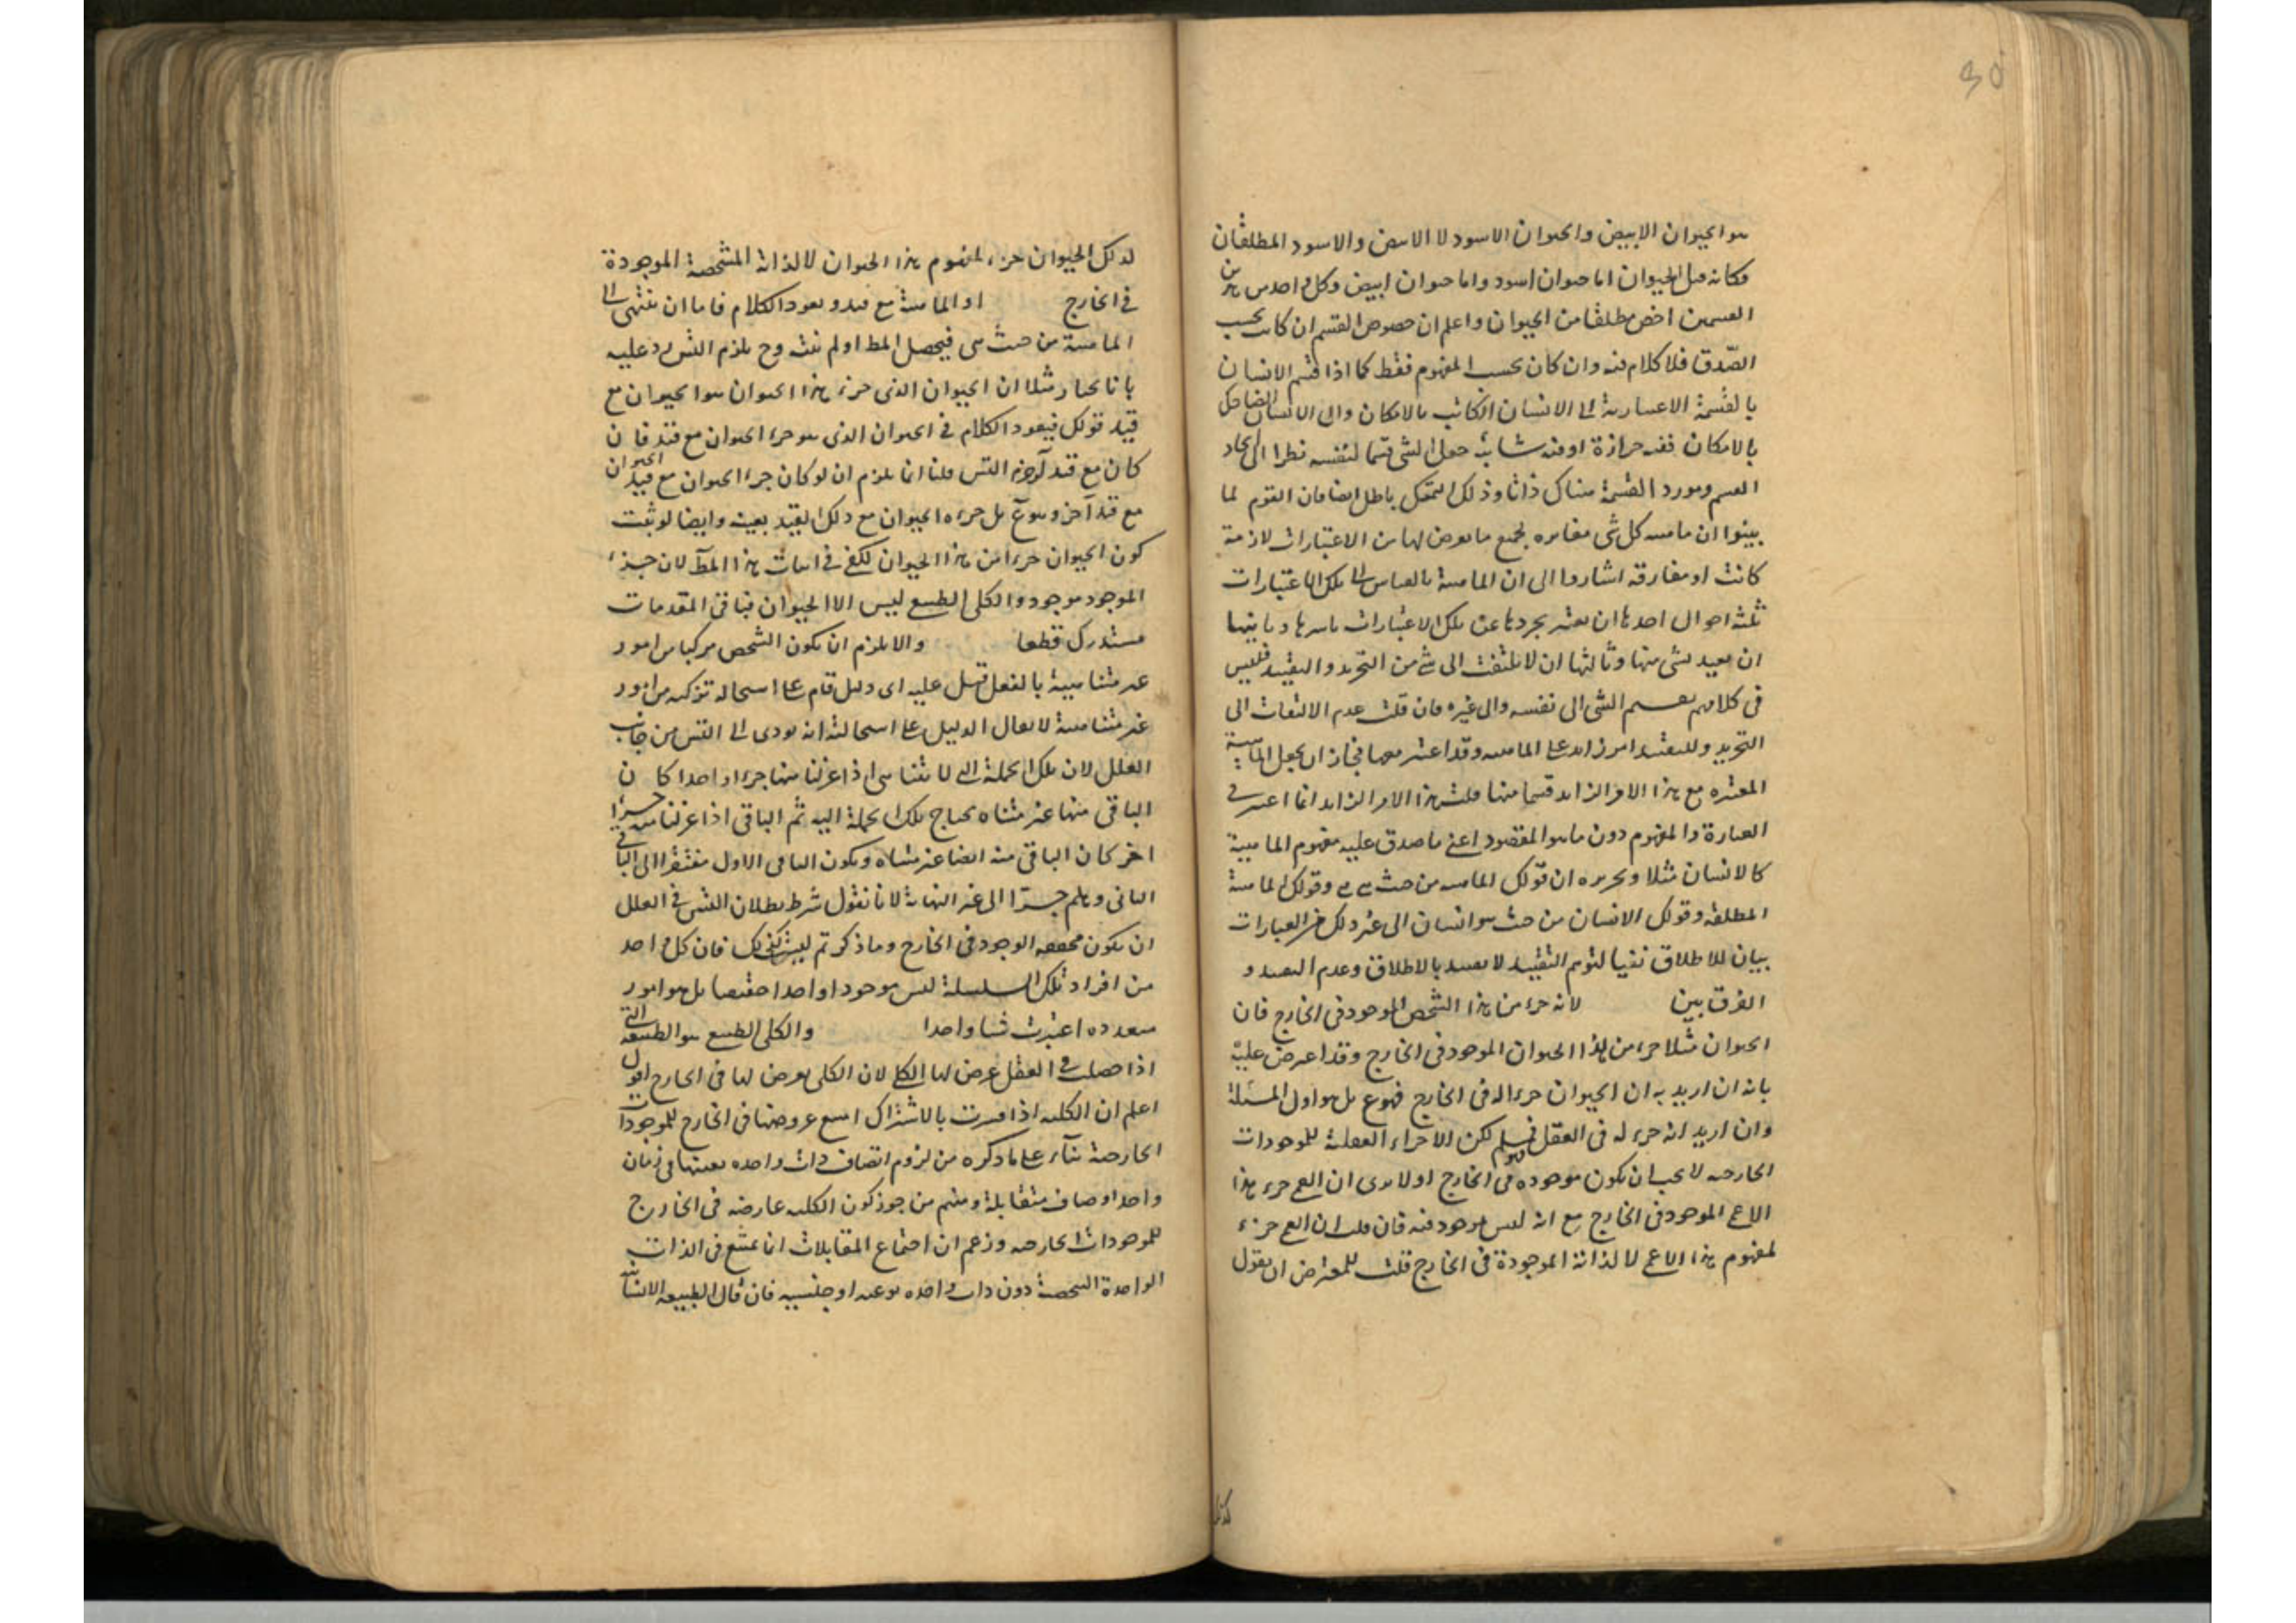 30
هو الحيوان الابيض والحيوان الاسود لا الابيض والاسود المطلقان
فكانه قيل الحيوان اما حيوان اسود واما حيوان ابيض وكل واحد من هذين
القسمين اخص مطلقا من الحيوان واعلم ان خصوص القسم ان كانت بحسب
الصدق فلا كلام فيه وان كان بحسب المفهوم فقط كما اذا قسم الانسان
بالقسمة الاعتبارية الى الانسان الكاتب بالامكان والى الانسان الضاحك
بالامكان ففيه حزازة او فيه شائبة جعل الشى قسما لنفسه نظرا الى اتحاد
القسم ومورد القسمة هناك ذاتا وذلك التمحل باطل ايضا فان القوم لما
بينوا ان ماهية كل شى مغايرة لجميع ما يعرض لها من الاعتبارات لازمة
كانت او مفارقة اشاروا الى ان الماهية بالقياس الى تلك الاعتبارات
ثلثة احوال احدها ان يعتبر تجردها عن تلك الاعتبارات باسرها وثانيها
ان يقيد بشى منها وثالثها ان لا يلتفت الى شى من التجريد والتقييد فليس
فى كلامهم تقسيم الشى الى نفسه والى غيره فان قلت عدم الالتفات الى
التجريد والتقييد امر زائد على الماهية وقد اعتبر معها فجاز ان يجعل الماهية
المعتبرة مع هذا الامر الزايد قسما منها قلت هذا الامر الزايد انما اعتبر فى
العبارة والمفهوم دون ما هو المقصود اعنى ما صدق عليه مفهوم الماهية
كالانسان مثلا وتحريره ان قولك الماهية من حيث هى هى وقولك الماهية
المطلقة وقولك الانسان من حيث هو انسان الى غير ذلك من العبارات
بيان للاطلاق نفيا لتوهم التقييد لا تقييد بالاطلاق وعدم التقييد و
الفرق بين لانه جزء من هذا الشخص الموجود فى الخارج فان
الحيوان مثلا جزء من هذا الحيوان الموجود فى الخارج وقد اعترض عليه
بانه ان اريد به ان الحيوان جزء له فى الخارج فهو ع بل هو اول المسئلة
وان اريد انه جزء له فى العقل فمسلم لكن الاجزاء العقلية للموجودات
الخارجية لا يجب ان تكون موجودة فى الخارج او لا يرى ان العمى جزء هذا
الاعمى الموجود فى الخارج مع انه ليس بموجود فيه فان قلت ان العمى جزء
لمفهوم هذا الاعمى لا لذاته الموجودة فى الخارج قلت للمعترض ان يقول
كذلك
لذلك الحيوان جزء لمفهوم هذا الحيوان لا لذاته المشخصة الموجودة
فى الخارج او الماهية مع قيد ويعود الكلام فاما ان ينتهى الى
الماهية من حيث هى فيحصل المط او لم ينته وح يلزم التس ورد عليه
بانا نختار مثلا ان الحيوان الذى جزء هذا الحيوان هو الحيوان مع
قيد قولك فيعود الكلام فى الحيوان الذى هو جزء الحيوان مع قيد فان
كان مع قيد آخر لزم التس قلنا انما يلزم ان لو كان جزء الحيوان مع قيد الحيوان
مع قيد آخر وهو ع بل جزءه الحيوان مع ذلك القيد بعينه وايضا لو ثبت
كون الحيوان جزءا من هذا الحيوان لكفى فى اثبات هذا المط لان جزء
الموجود موجود والكلى الطبيعى ليس الا الحيوان فباقى المقدمات
مستدرك قطعا والا يلزم ان يكون الشخص مركبا من امور
غير متناهية بالفعل قيل عليه اى دليل قام على استحالة تركبه من امور
غير متناهية لا يقال الدليل على استحالته انه يودى الى التس من جانب
العلل لان تلك الجملة التى لا تتناهى اذا عزلنا منها جزءا واحدا كان
الباقى منها غير متناه يحتاج تلك الجملة اليه ثم الباقى اذا عزلنا منه جزءا
اخر كان الباقى منه ايضا غير متناه ويكون الباقى الاول مفتقرا الى الباقى
الثانى وهلم جرا الى غير النهاية لانا نقول شرط بطلان التس فى العلل
ان يكون محققة الوجود فى الخارج وما ذكرتم ليس كذلك فان كل واحد
من افراد تلك السلسلة ليس موجودا واحدا حقيقيا بل هو امور
متعددة اعتبرت شيا واحدا والكلى الطبيعى هو الطبيعة التى
اذا حصلت فى العقل عرض لها الكلى لان الكلى يعرض لها فى الخارج اقول
اعلم ان الكلية اذا فسرت بالاشتراك امتنع عروضها فى الخارج للموجودات
الخارجية بناء على ما ذكره من لزوم اتصاف ذات واحدة بعينها فى زمان
واحد اوصاف متقابلة ومنهم من جوز كون الكلية عارضة فى الخارج
للموجودات الخارجية وزعم ان اجتماع المتقابلات انما يمتنع فى الذات
الواحدة الشخصية دون ذات واحدة نوعية او جنسية فان قال الطبيعة الانسانية